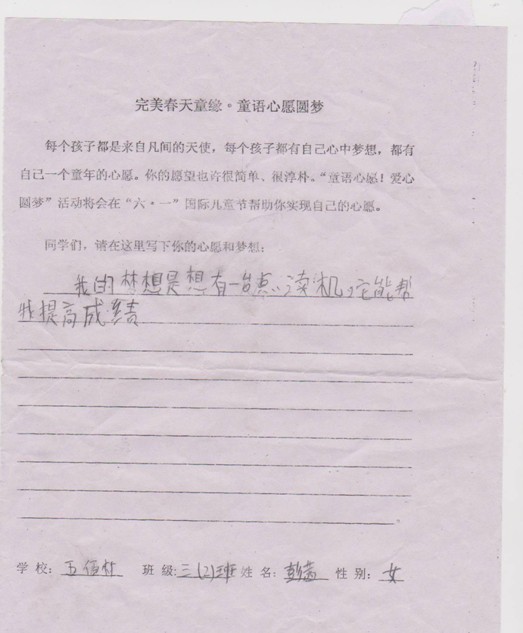 完美春天童缘·童语心愿圆梦
每个孩子都是来自凡间的天使，每个孩子都有自己心中梦想，都有
自己一个童年的心愿。你的愿望也许很简单、很淳朴。“童语心愿！爱心
圆梦”活动将会在“六·一”国际儿童节帮助你实现自己的心愿。
同学们，请在这里写下你的心愿和梦想：
我的梦想是想有一台点读机，它能帮
我提高成绩
学校： 班级：三(2)班 姓名：彭 性别：女